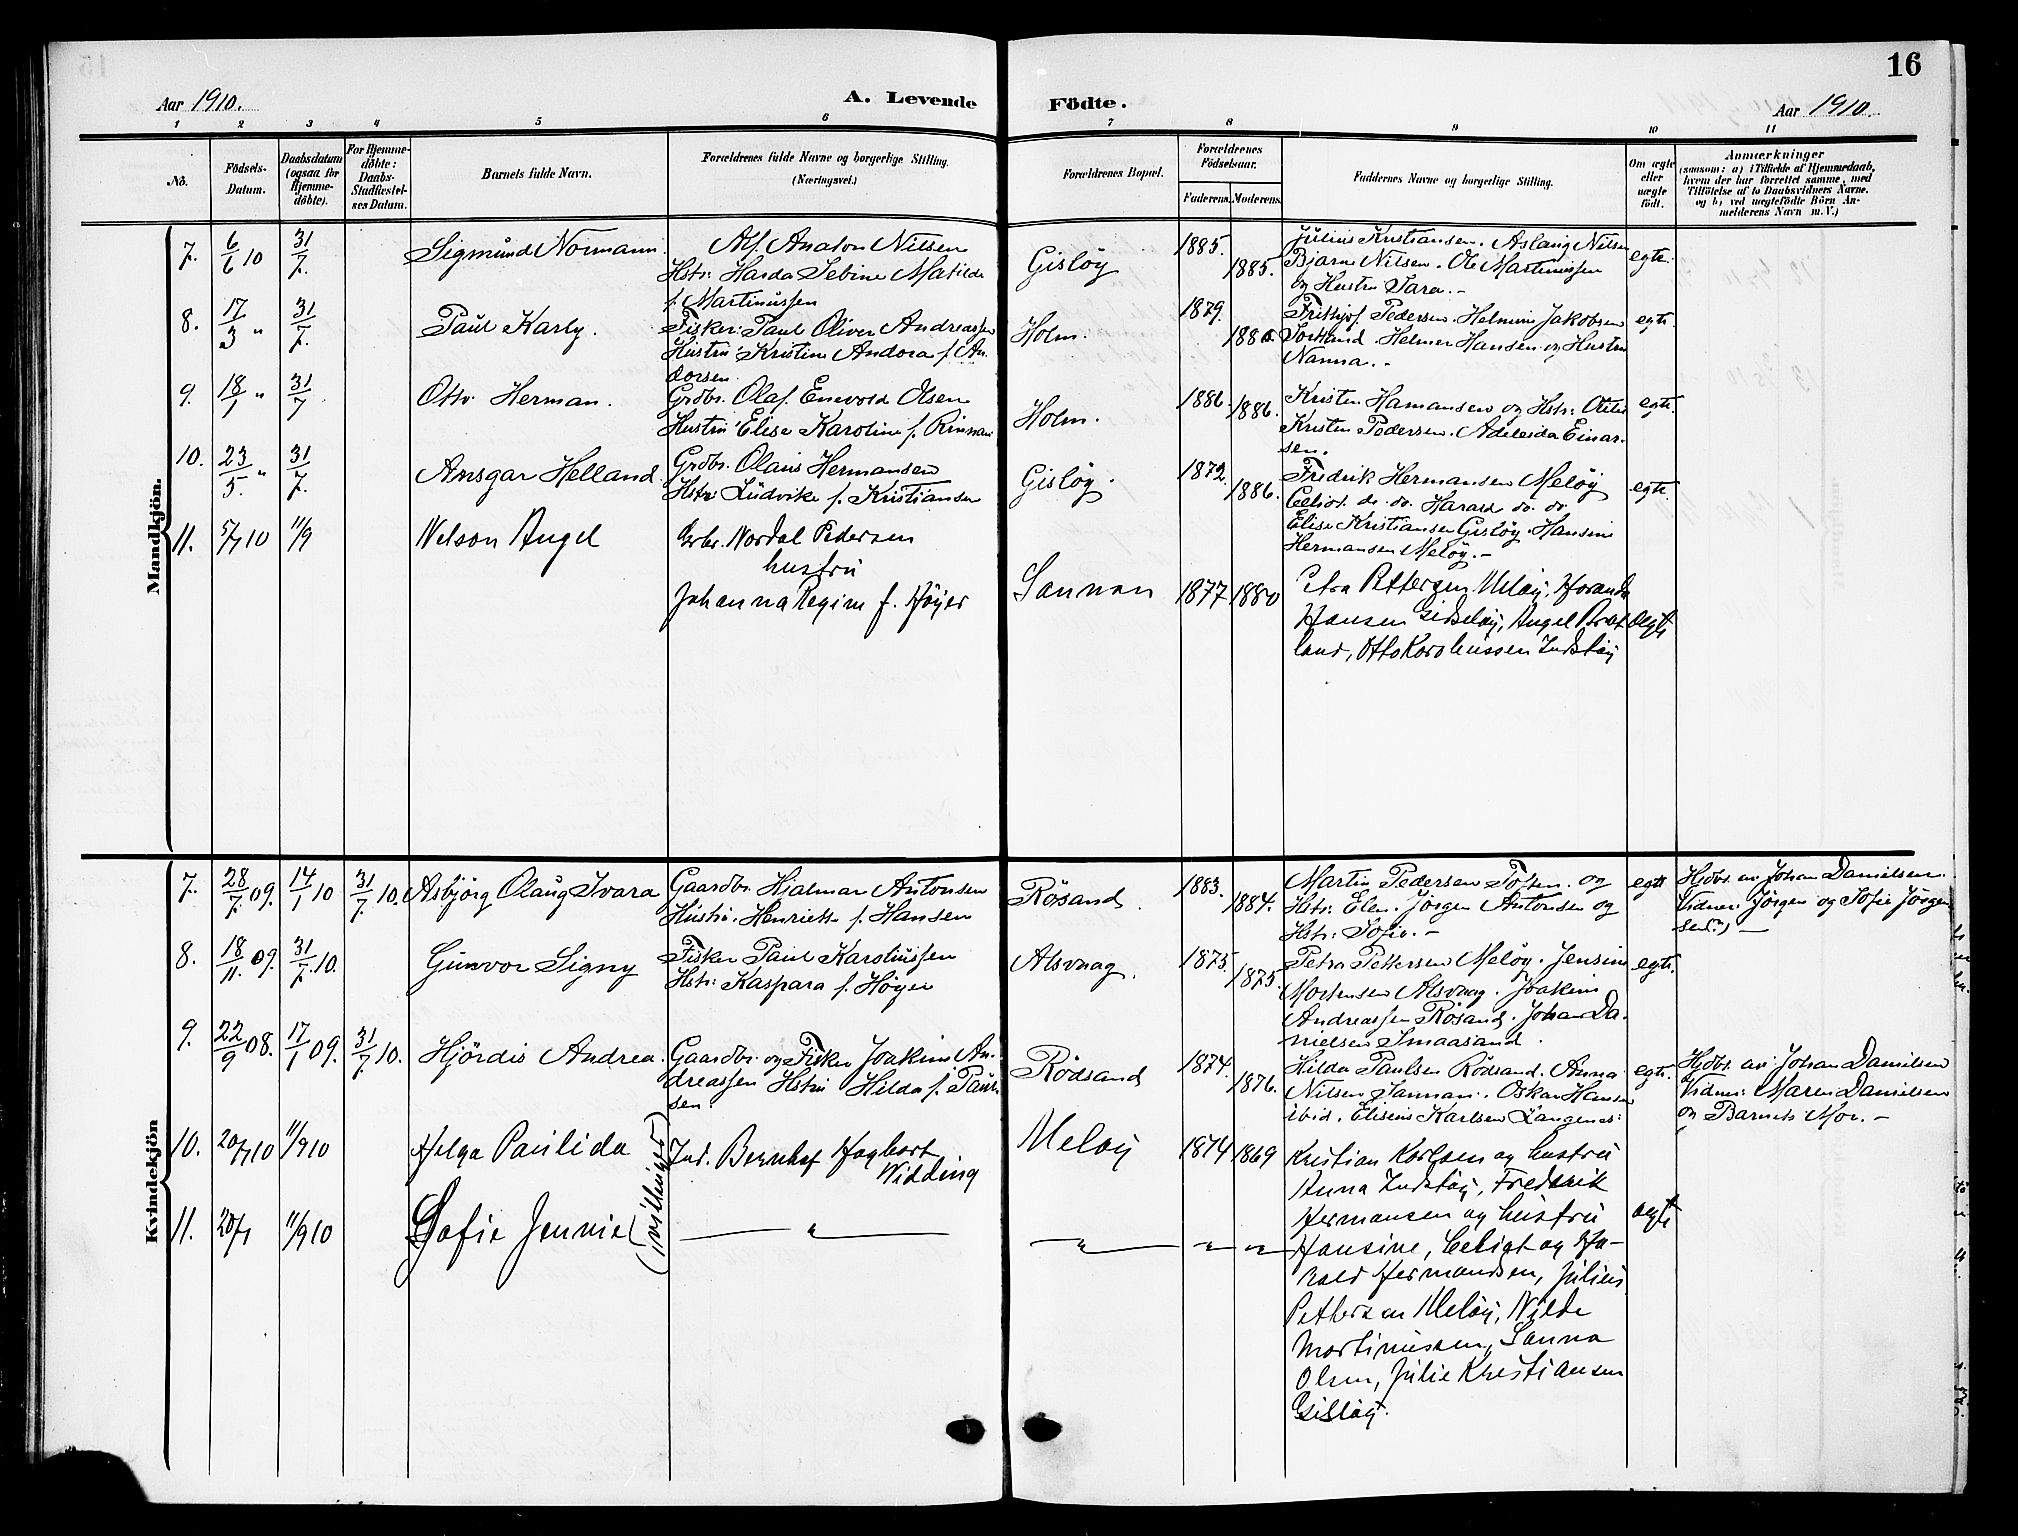 16
Aar 1910.
A. Levende Födte.
Aar 1910.
1 2 3 4 5 6 7 8 9 10 11
No.
Födsels-Datum.
Daabsdatum (ogsaa for Hjemme-döbte).
For Hjemme-döbte: Daabs-Stadfæstel-ses Datum.
Barnets fulde Navn.
Forældrenes fulde Navne og borgerlige Stilling.
(Næringsvei.)
Forældrenes Bopæl.
Forældrenes Födselsaar.
Faderens. Moderens.
Faddernes Navne og borgerlige Stilling.
Om ægte eller uægte födt.
Anmærkninger
(saasom: a) i Tilfælde af Hjemmedaab,
hvem der har forrettet samme, med
Tilföielse af to Daabsvidners Navne.
og b) ved uægtefödte Börn An-
melderens Navn m. V.)
Mandkjön.
7. 6/6 10 31/7. Sigmund Normann. Alf Anaton Nilsen
Hstr: Harda Sebine Matilde
f. Martinussen
Gisløy 1885. 1885.
Julius Kristiansen. Aslaug Nilsen
Bjarne Nilsen. Ole Martinussen
og Hustru Sara. -
egte.
8. 17/3 " 31/7. Paul Karly. Fisker: Paul Oliver Andreassen
Hustru: Kristine Andora f. An-
dorsen.
Holm. 1879. 1880.
Frithjof Pedersen. Helmine Jakobsen
Sortland. Helmer Hansen og Hustru
Nanna. -
egte.
9. 18/1 " 31/7 Otto Herman. Grdbr. Olaf Enevold Olsen
Hustru: Elise Karoline f.
Holm. 1886. 1886.
Kristen Hamansen og Hstr:
Kristen Pedersen. Adeleida Einar-
sen.
egte.
10. 23/5. " 31/7. Ansgar Helland. Grdbr. Olaus Hermansen
Hstr: Ludvike f. Kristiansen
Gisløy. 1872. 1886.
Fredrik Hermansen Meløy
do. do. Harald do. do.
Elise Kristiansen Gisløy. Hansine
Hermansen Meløy. -
egte.
11. 5/7 10 11/9 Nelson Angel
Nordal Pedersen
hustru
Johanna Regine f. Höyer
Sannan 1877 1880
Petra Pettersen Meløy,
Hansen Gidsløy, Angel
land, Otto Indsløy
ægte
Kvindekjön
7. 28/7. 09. 14/1 10 31/7. 10. Asbjörg Olaug Ivara Gaardbr. Hjalmar Antonsen
Hustru. Henriette f. Hansen
Rösand. 1883. 1884.
Martin Pedersen Toften. og
Hstr: Elen. Jörgen Antonsen og
Hstr: Sofie. -
egte
Hjdbt. av: Johan Danielsen.
Vidner: Jörgen og Sofie Jörgen
sen.
8. 18/11. 09. 31/7. 10. Gunvor Signy Fisker Paul Karoliussen
Hstr: Kaspara f. Höyer
Alsvaag. 1875. 1875.
Petra Pettersen Meløy. Jensine
Mortensen Alsvaag. Joakim
Andreassen Rösand. Johan Da-
nielsen Smaasand.
egte.
9. 22/9 08. 17/1 09. 31/7 10. Hjördis Andrea. Gaardbr. og Fisker Joakim An-
dreassen Hstru Hilda f. Paul-
sen.
Rödsand 1874. 1876.
Hilda Paulsen Rödsand. Anna
Nilsen Sannan. Oskar Hansen
ibid. Eliseus Karlsen Langenes:
egte.
Hjdbt. av: Johan Danielsen
Vidner: Maren Danielsen
og Barnets Mor. -
10. 20/7 10 11/9 10 Helga Paulida
Ind. Bernhof Hagbart
Widding
Meløy 1874 1869
Kristian Karlsen og hustru
Anna Indsløy, Fredrik
Hermansen og hustru
Hansine, Celiot og Ha-
rald Hermansen, Julius
Pettersen Meløy, Nilde
Martinussen, Sanna
Olsen, Julie Kristiansen
Gisløy.
11. 20/7 11/9 10 Sofie Jennie (tvillinger) " " " " ægte